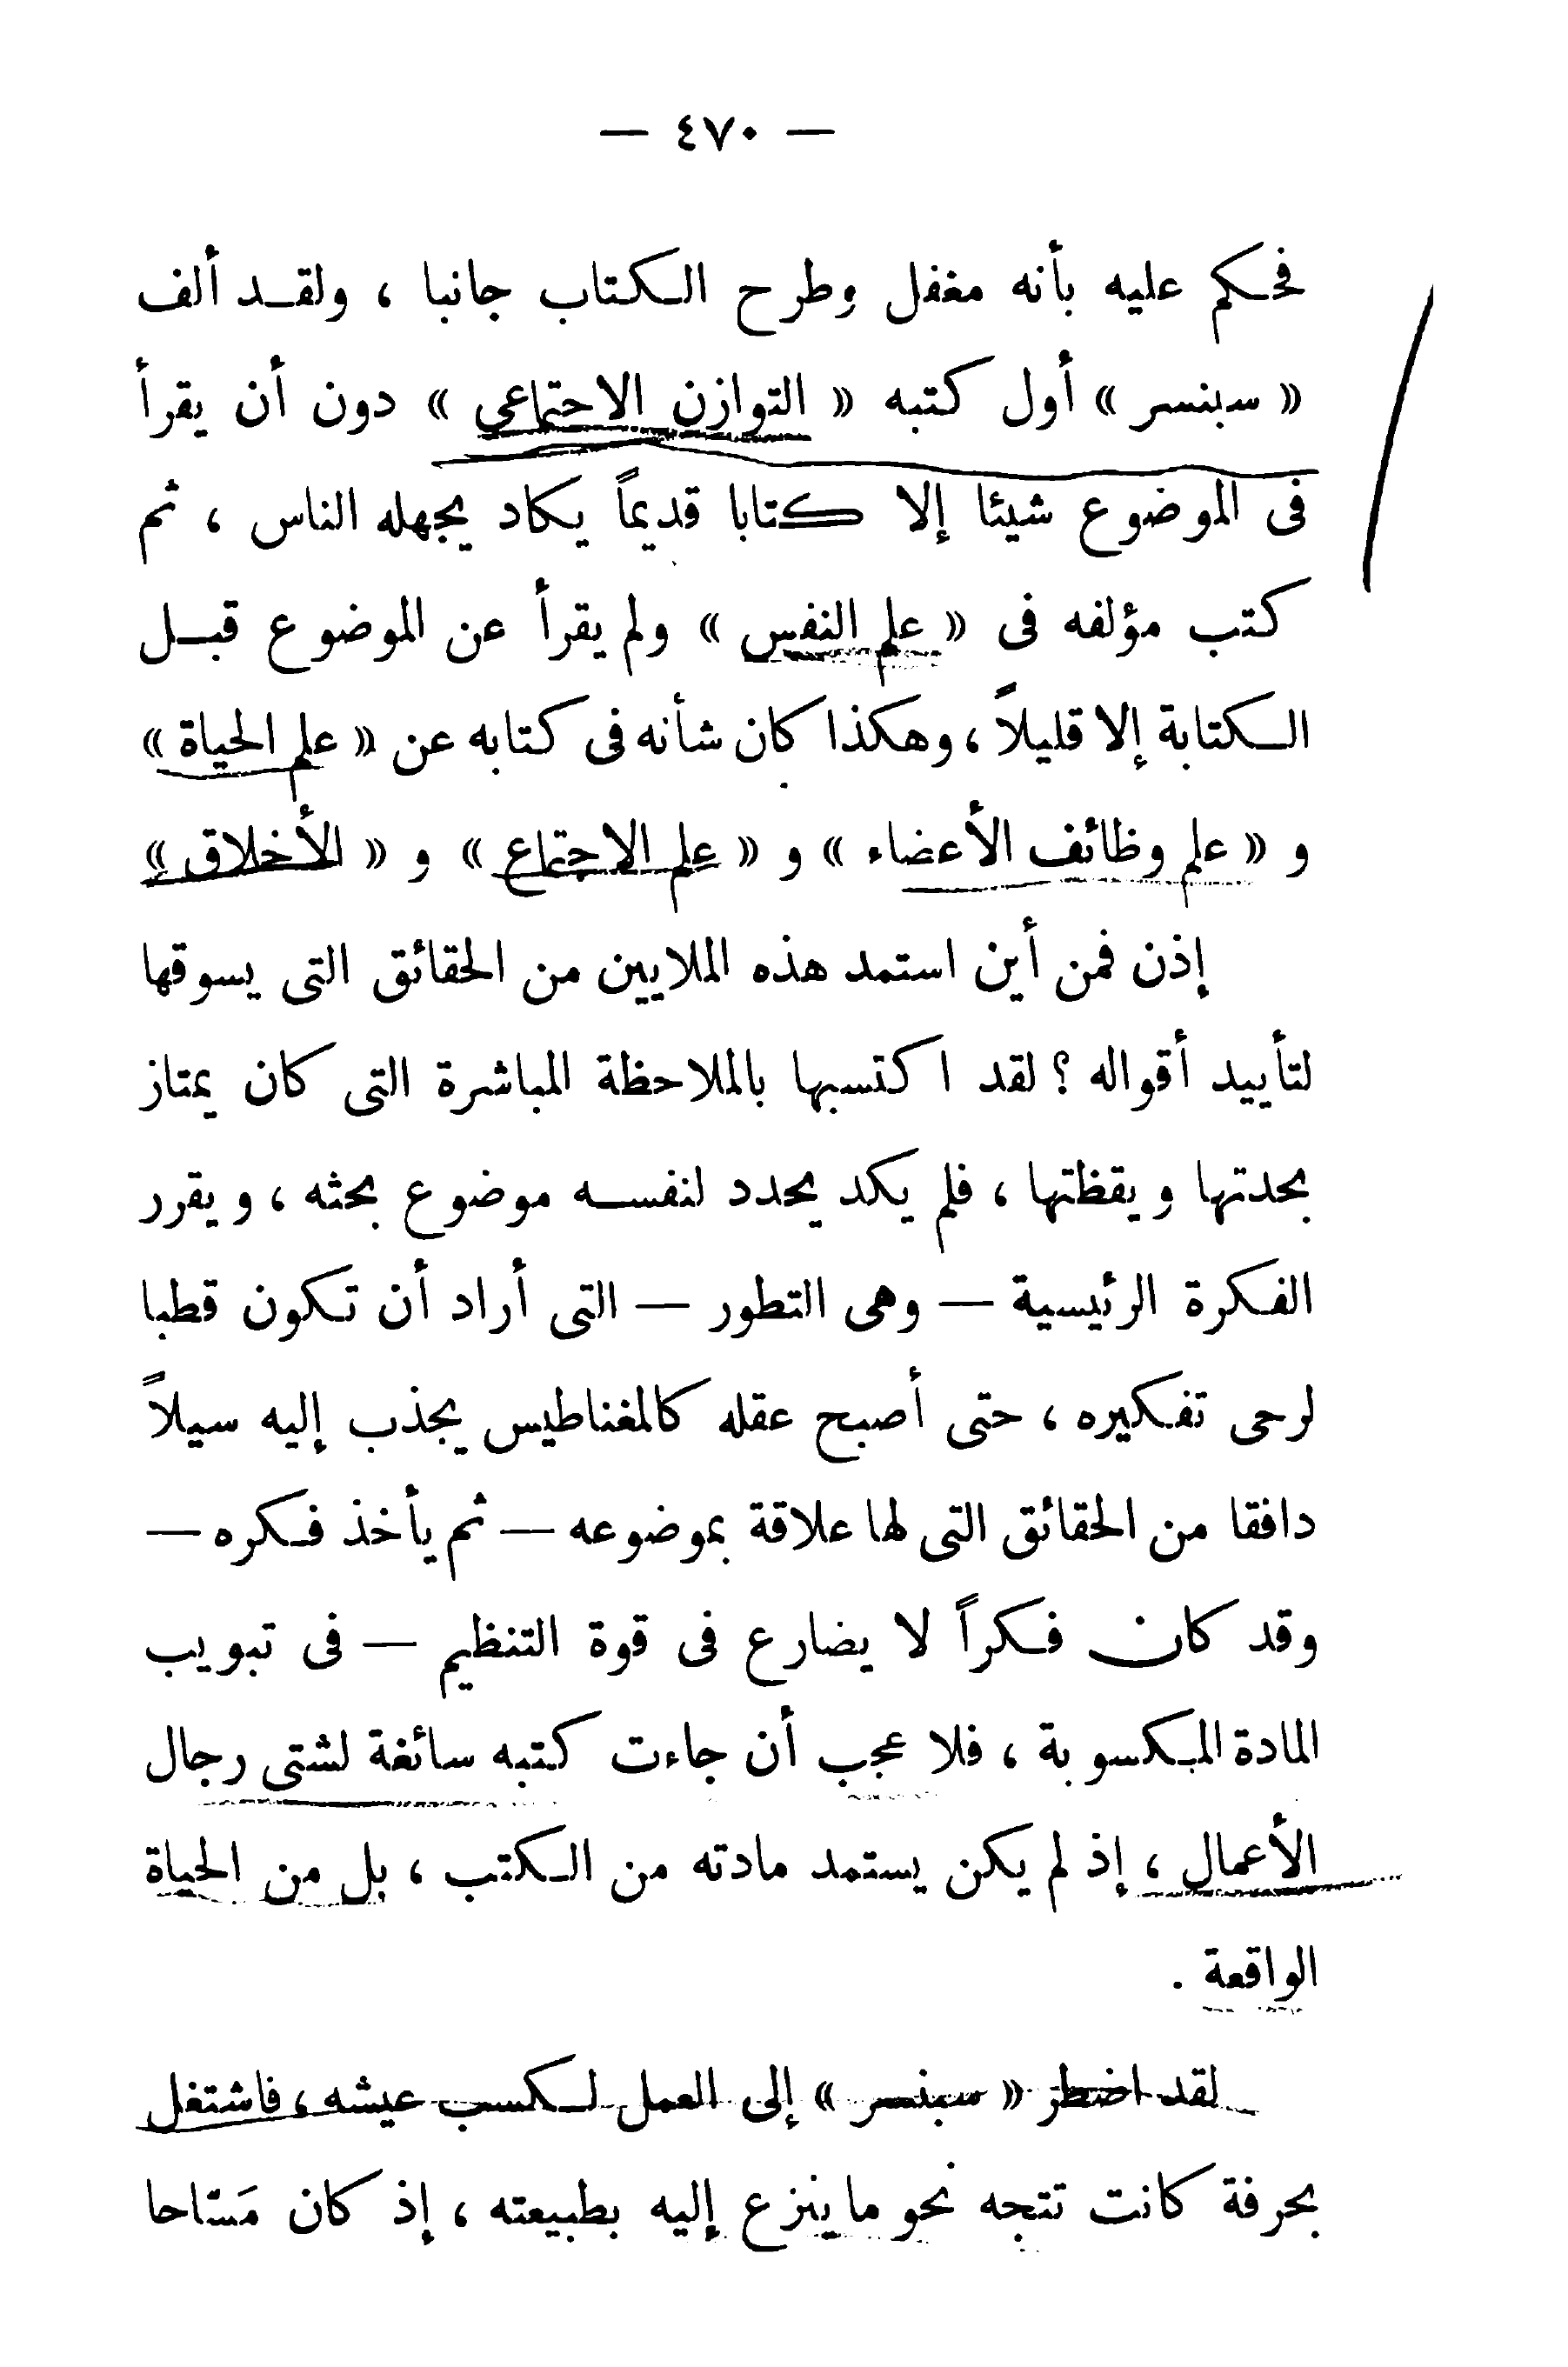 — ٤٧٠ —
فحكم عليه بأنه مغفل وطرح الكتاب جانبا ، ولقد ألف
« سبنسر » أول كتبه « التوازن الاجتماعي » دون أن يقرأ
فى الموضوع شيئا إلا كتابا قديماً يكاد يجهله الناس ، ثم
كتب مؤلفه فى « علم النفس » ولم يقرأ عن الموضوع قبل
الكتابة إلا قليلاً ، وهكذا كان شأنه فى كتابه عن « علم الحياة »
و « علم وظائف الأعضاء » و « علم الاجتماع » و « الأخلاق »
إذن فمن أين استمد هذه الملايين من الحقائق التى يسوقها
لتأييد أقواله ؟ لقد اكتسبها بالملاحظة المباشرة التى كان يمتاز
بحدتها ويقظتها ، فلم يكد يحدد لنفسه موضوع بحثه ، ويقرر
الفكرة الرئيسية — وهى التطور — التى أراد أن تكون قطبا
لرحى تفكيره ، حتى أصبح عقله كالمغناطيس يجذب إليه سيلاً
دافقا من الحقائق التى لها علاقة بموضوعه — ثم يأخذ فكره —
وقد كان فكراً لا يضارع فى قوة التنظيم — فى تبويب
المادة المكسوبة ، فلا عجب أن جاءت كتبه سائغة لشتى رجال
الأعمال ، إذ لم يكن يستمد مادته من الكتب ، بل من الحياة
الواقعة .
لقد اضطر « سبنسر » إلى العمل لكسب عيشه ، فاشتغل
بحرفة كانت تتجه نحو ما ينزع إليه بطبيعته ، إذ كان مَسّاحا